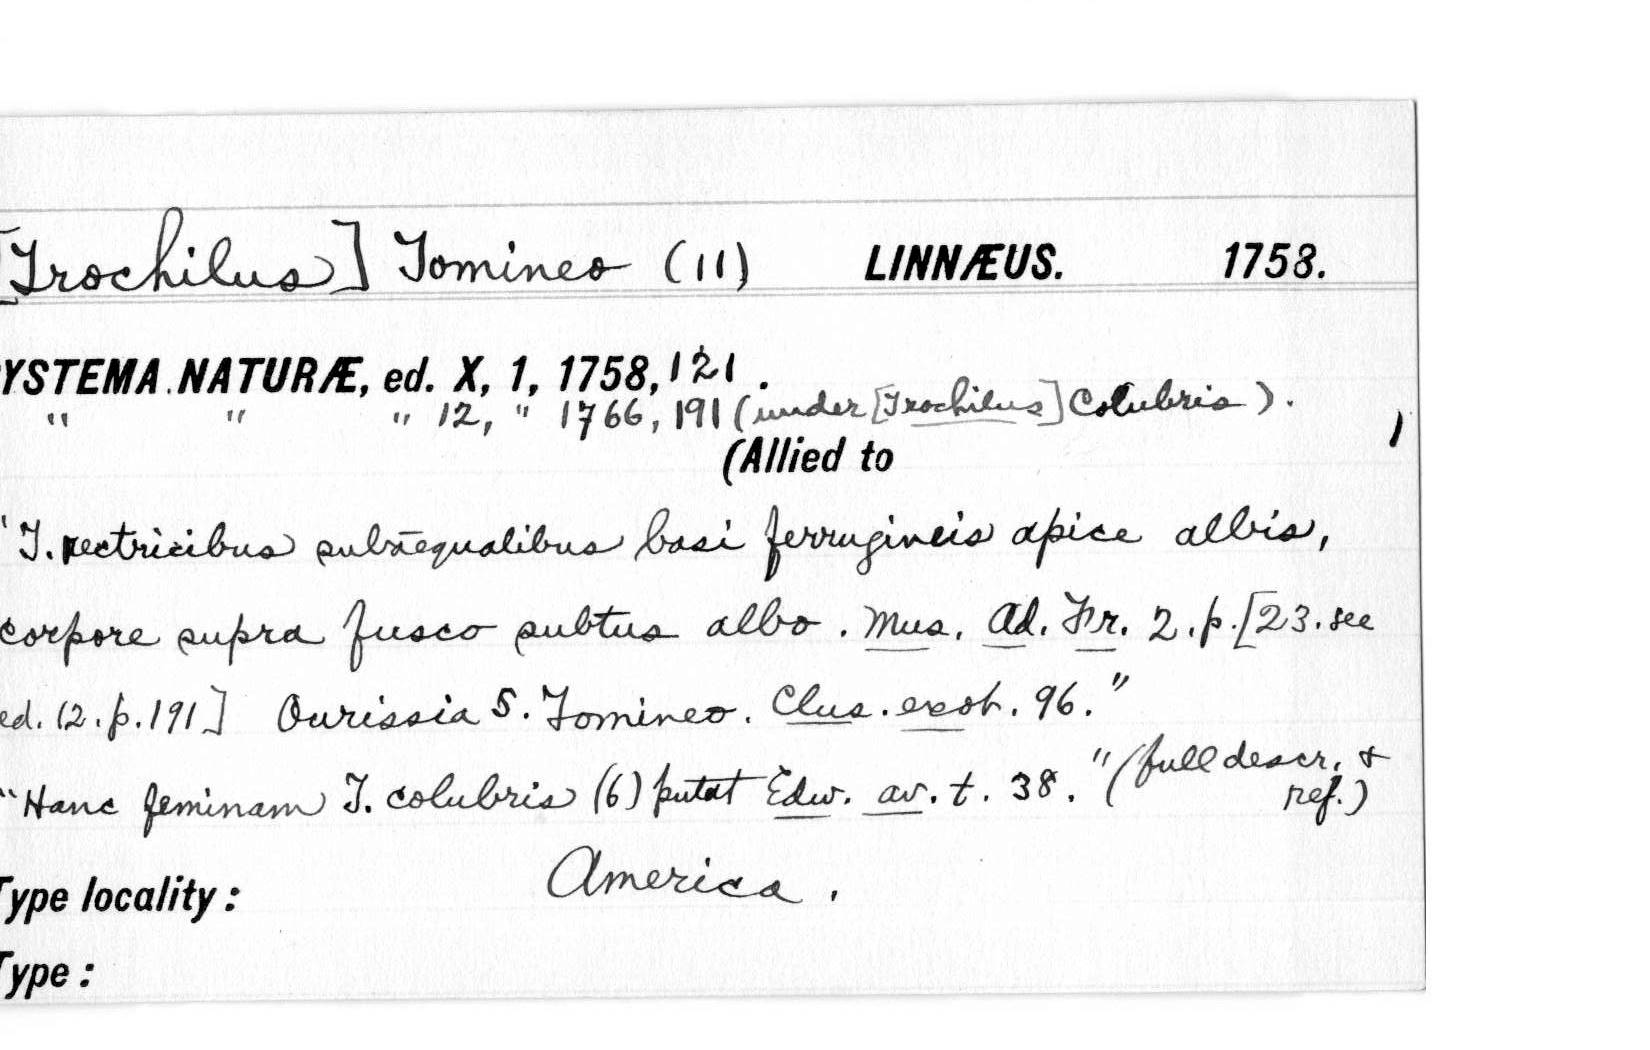 [Trochilus] Tomineo (11) LINNÆUS. 1758.
YSTEMA NATURÆ, ed. X, 1, 1758, 121.
" " " 12, " 1766, 191 (under [Trochilus] Colubris).
(Allied to )
"T. rectricibus subæqualibus basi ferrugineis apice albis,
corpore supra fusco subtus albo. Mus. Ad. Fr. 2. p. [23. see
ed. 12. p. 191] Ourissia S. Tomineo. Clus. exot. 96."
"Hanc feminam T. colubris (6) putat Edw. av. t. 38." (full descr. &
ref.)
Type locality: America.
Type: